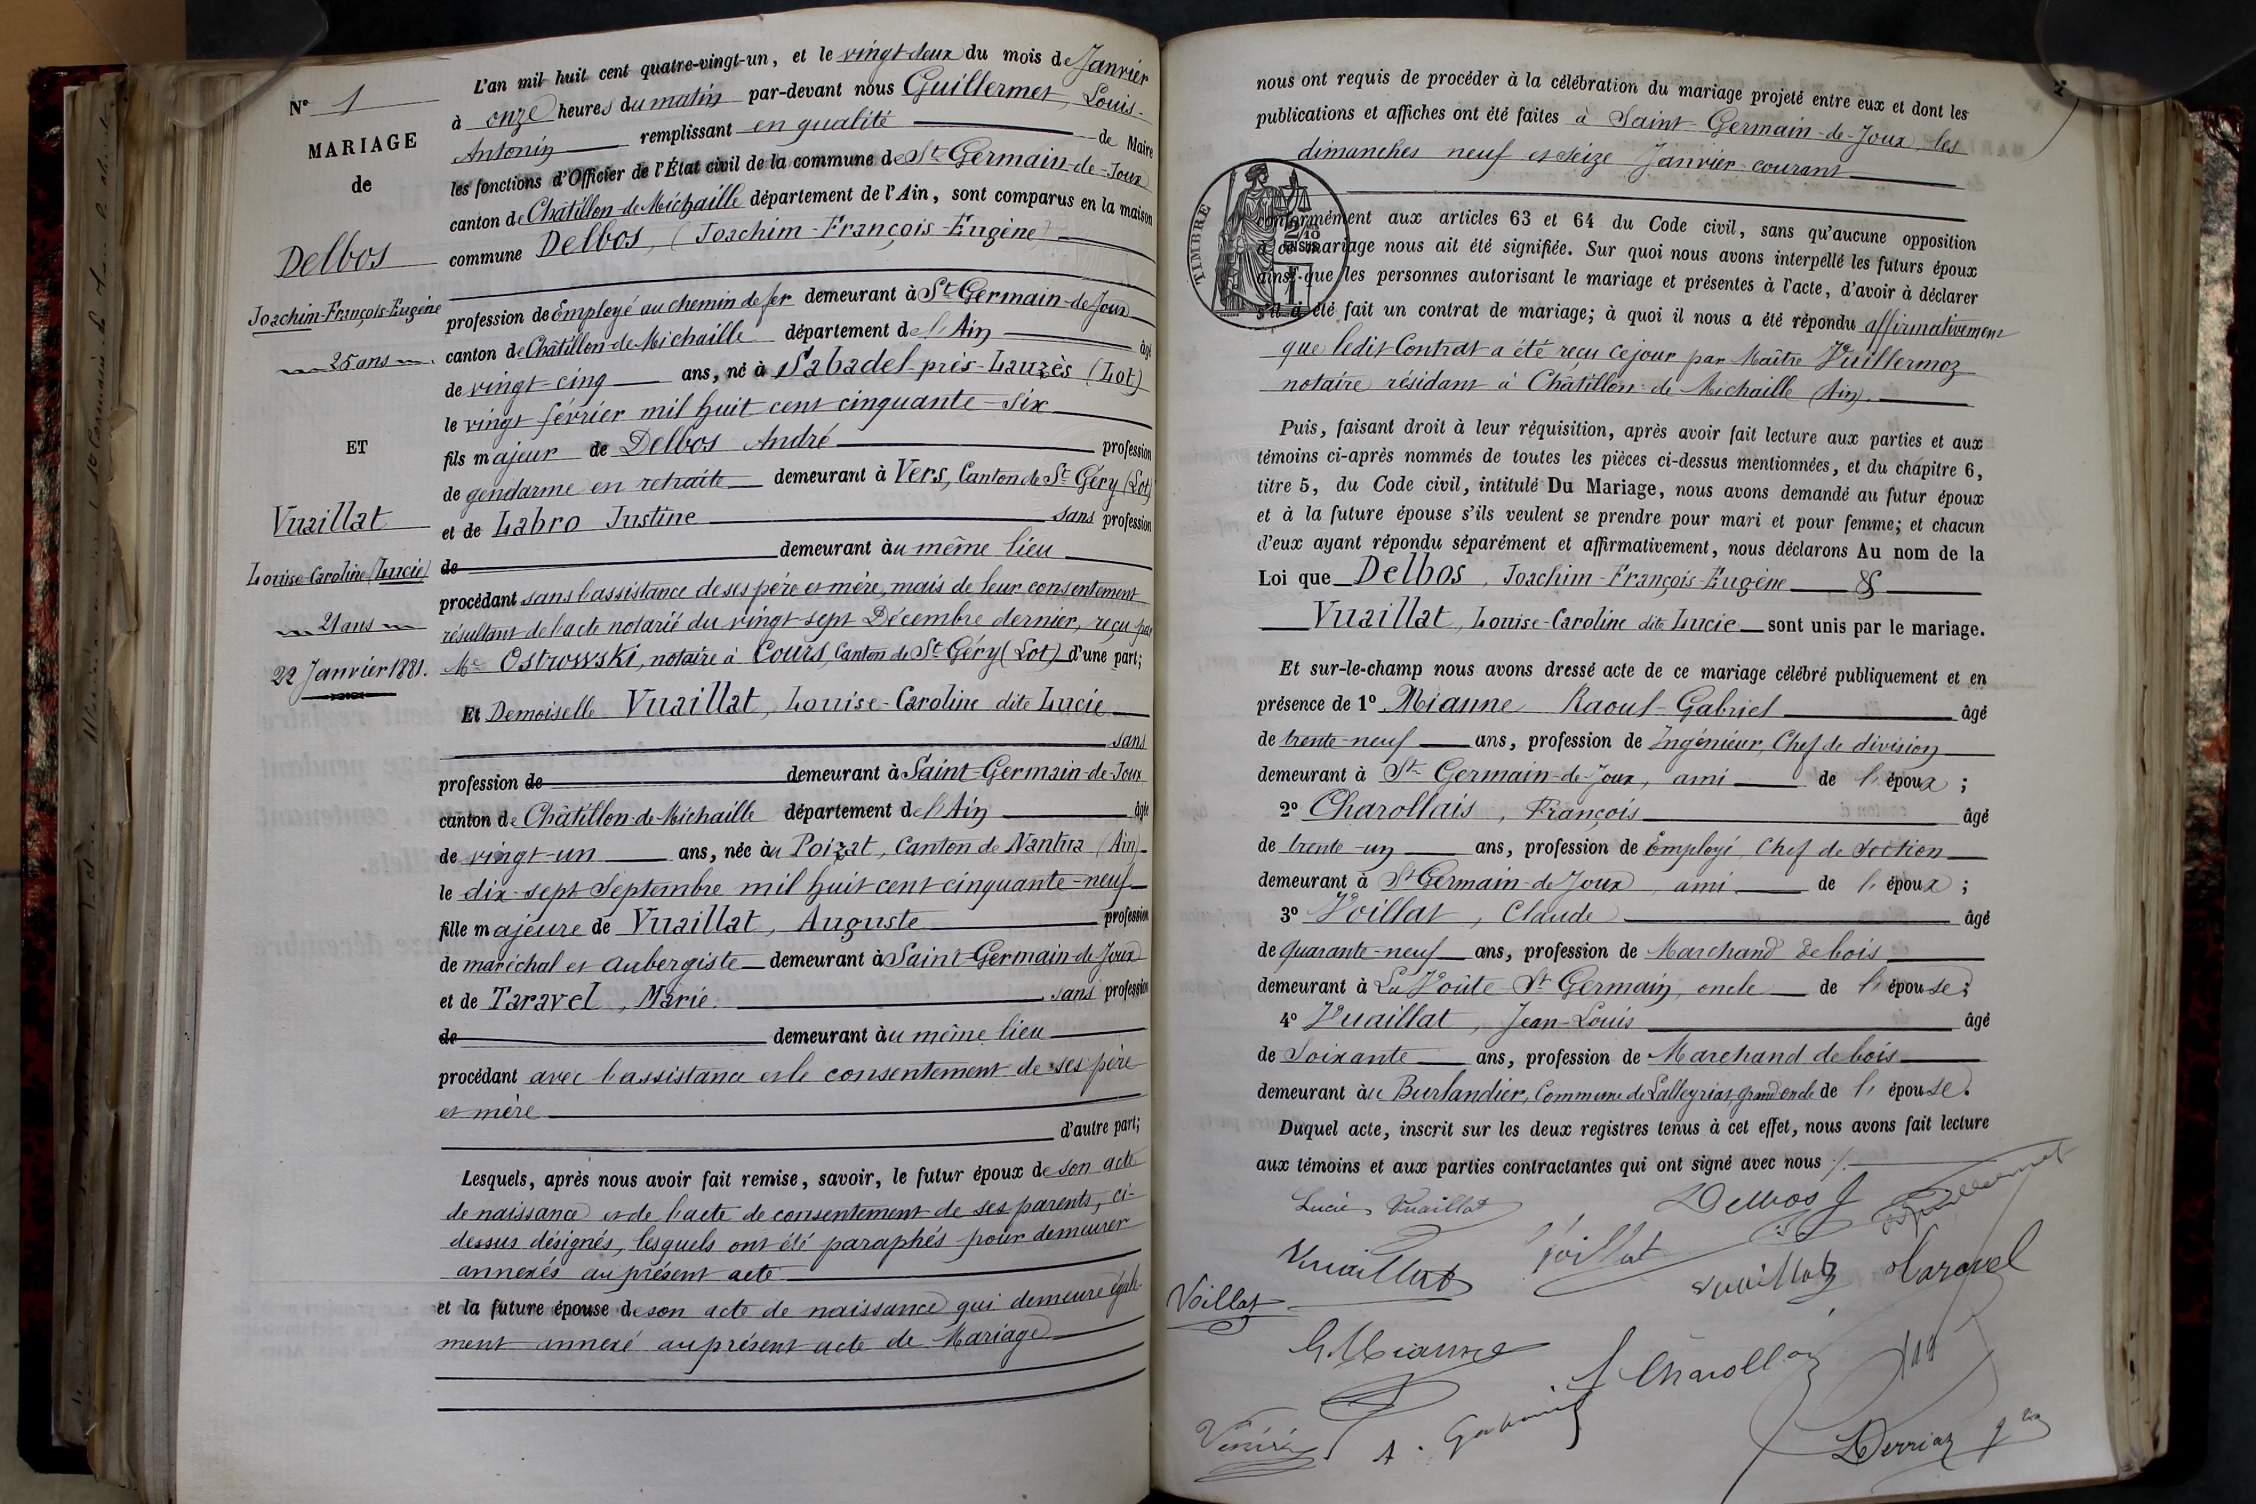 N° 1
MARIAGE
de
Delbos
Joachim-François-Eugène
25 ans
ET
Vuaillat
Louise-Caroline (Lucie)
21 ans
22 Janvier 1881.
L'an mil huit cent quatre-vingt-un, et le vingt-deux du mois de Janvier
à onze heures du matin par-devant nous Guillermet, Louis-
Antonin remplissant en qualité de Maire
les fonctions d'Officier de l'État civil de la commune de St Germain-de-Joux
canton de Châtillon-de-Michaille département de l'Ain, sont comparus en la maison
commune Delbos, (Joachim-François-Eugène)
profession de Employé au chemin de fer demeurant à St Germain-de-Joux
canton de Châtillon-de-Michaille département de l'Ain âgé
de vingt-cinq ans, né à Sabadel-près-Lauzès (Lot)
le vingt février mil huit cent cinquante-six
fils majeur de Delbos André profession
de gendarme en retraite demeurant à Vers, Canton de St Géry (Lot)
et de Labro Justine sans profession
de demeurant au même lieu
procédant sans l'assistance de ses père et mère, mais de leur consentement
résultant de l'acte notarié du vingt sept Décembre dernier, reçu par
Me Ostrowski, notaire à Cours, Canton de St Géry (Lot) d'une part;
Et Demoiselle Vuaillat, Louise-Caroline dite Lucie
sans
profession de demeurant à Saint-Germain-de-Joux
canton de Châtillon-de-Michaille département de l'Ain âgée
de vingt-un ans, née au Poizat, Canton de Nantua (Ain)
le dix-sept Septembre mil huit cent cinquante-neuf
fille majeure de Vuaillat, Auguste profession
de maréchal et aubergiste demeurant à Saint-Germain-de-Joux
et de Taravel, Marie. sans profession
de demeurant au même lieu
procédant avec l'assistance et le consentement de ses père
et mère
d'autre part;
Lesquels, après nous avoir fait remise, savoir, le futur époux de son acte
de naissance et de l'acte de consentement de ses parents, ci-
dessus désignés, lesquels ont été paraphés pour demeurer
annexés au présent acte
et la future épouse de son acte de naissance qui demeure égale-
ment annexé au présent acte de Mariage
nous ont requis de procéder à la célébration du mariage projeté entre eux et dont les
publications et affiches ont été faites à Saint-Germain-de-Joux les
dimanches neuf et seize Janvier courant
TIMBRE
conformément aux articles 63 et 64 du Code civil, sans qu'aucune opposition
à ce mariage nous ait été signifiée. Sur quoi nous avons interpellé les futurs époux
ainsi que les personnes autorisant le mariage et présentes à l'acte, d'avoir à déclarer
s'il a été fait un contrat de mariage; à quoi il nous a été répondu affirmativement
que ledit Contrat a été reçu ce jour par Maître Vuillermoz
notaire résidant à Châtillon-de-Michaille (Ain).
Puis, faisant droit à leur réquisition, après avoir fait lecture aux parties et aux
témoins ci-après nommés de toutes les pièces ci-dessus mentionnées, et du chapitre 6,
titre 5, du Code civil, intitulé Du Mariage, nous avons demandé au futur époux
et à la future épouse s'ils veulent se prendre pour mari et pour femme; et chacun
d'eux ayant répondu séparément et affirmativement, nous déclarons Au nom de la
Loi que Delbos, Joachim-François-Eugène &
Vuaillat, Louise-Caroline dite Lucie sont unis par le mariage.
Et sur-le-champ nous avons dressé acte de ce mariage célébré publiquement et en
présence de 1° Mianne Raoul-Gabriel âgé
de trente-neuf ans, profession de Ingénieur, Chef de division
demeurant à St Germain-de-Joux, ami de l'époux;
2° Charollais, François âgé
de trente-un ans, profession de Employé Chef de Section
demeurant à St Germain-de-Joux, ami de l'époux;
3° Voillat, Claude âgé
de quarante-neuf ans, profession de Marchand de bois
demeurant à La Voûte St Germain, oncle de l'épouse;
4° Vuaillat, Jean-Louis âgé
de Soixante ans, profession de Marchand de bois
demeurant au Burlandier, Commune de Lalleyriat, grand oncle de l'épouse.
Duquel acte, inscrit sur les deux registres tenus à cet effet, nous avons fait lecture
aux témoins et aux parties contractantes qui ont signé avec nous
Lucie Vuaillat Delbos J Guillermet
Vuaillat Voillat Vuaillat Taravel
Voillat
G. Mianne
f Charollais